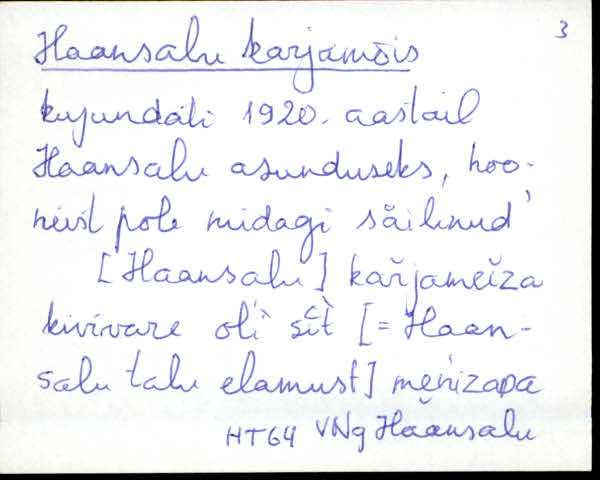 3
Haansalu karjamõis
kujundati 1920. aastail
Haansalu asunduseks, hoo-
neist pole midagi säilinud
[Haansalu] kar̆jamei̯za
kivivare oĺi sit̀ [= Haan-
salu talu elamust] menizapa
HT64 VNg Haansalu